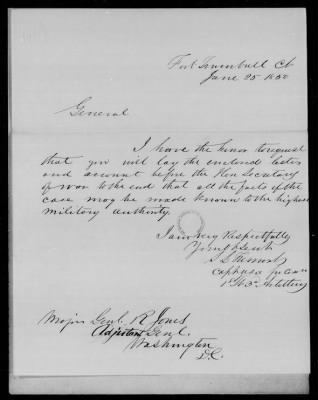 Fort Trumbull Ct
June 25 1850
General
I have the honor to request
that you will lay the enclosed letter
and account before the Hon Secretary
of war to the end that all the facts of the
case may be made known to the highest
military authority
I am very Respectfully
Your Obt Servt
1st &
Major Genl. R Jones
Adjutant Genl.
Washington
D.C.